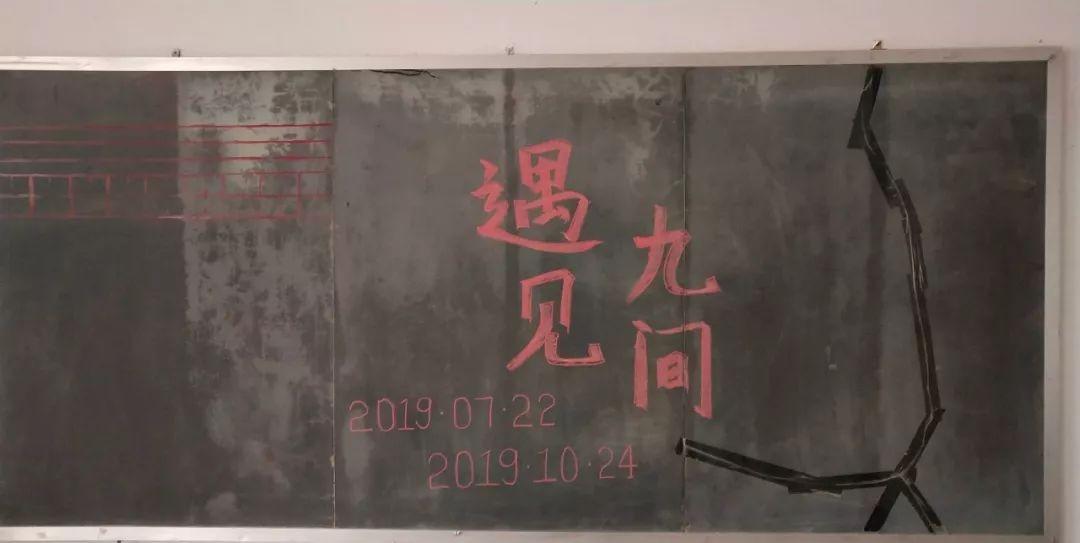 遇见
九间
2019·07·22
2019·10·24